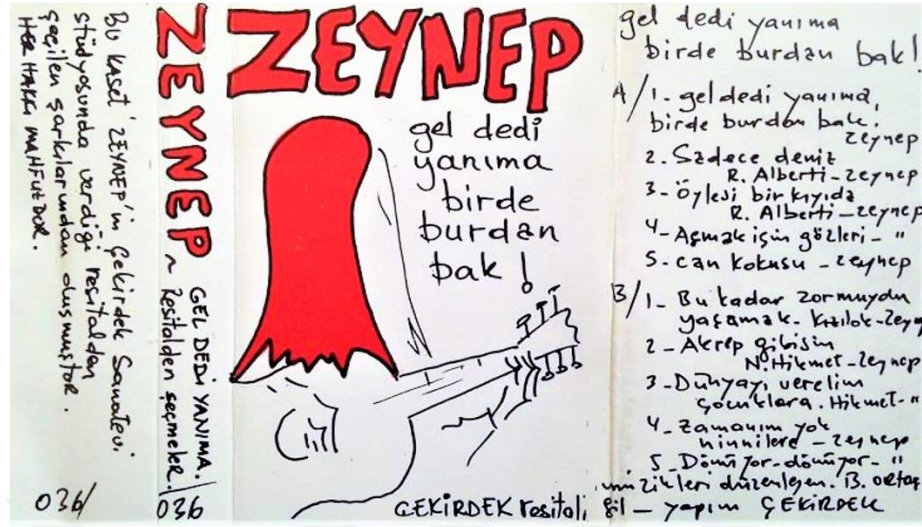 Bu kaset 'ZEYNEP'in Çekirdek Sanatevi
stüdyosunda verdiği resitalden
seçilen şarkılarından oluşmuştur.
HER HAKKI MAHFUZDUR.
036/
ZEYNEP ~ GEL DEDİ YANIMA.
Resitalden seçmeler
036
ZEYNEP
gel dedi
yanıma
birde
burdan
bak!
ÇEKİRDEK resitali
gel dedi yanıma
birde burdan bak!
A/ 1- gel dedi yanıma,
birde burdan bak.
zeynep
2. Sadece deniz
R. Alberti - zeynep
3- Öylesi bir kıyıda
R. Alberti - zeynep
4- Açmak için gözleri - "
5- can kokusu - zeynep
B/ 1- Bu kadar zormuydu
yaşamak. Kızılok-Zeyn
2- Akrep gibisin
N. Hikmet - zeynep
3- Dünyayı verelim
çocuklara. Hikmet-"
4- Zamanım yok
ninnilere - zeynep
5- Dönüyor-dönüyor - "
müzikleri düzenleyen. B. ortaç
gil - yapım ÇEKİRDEK